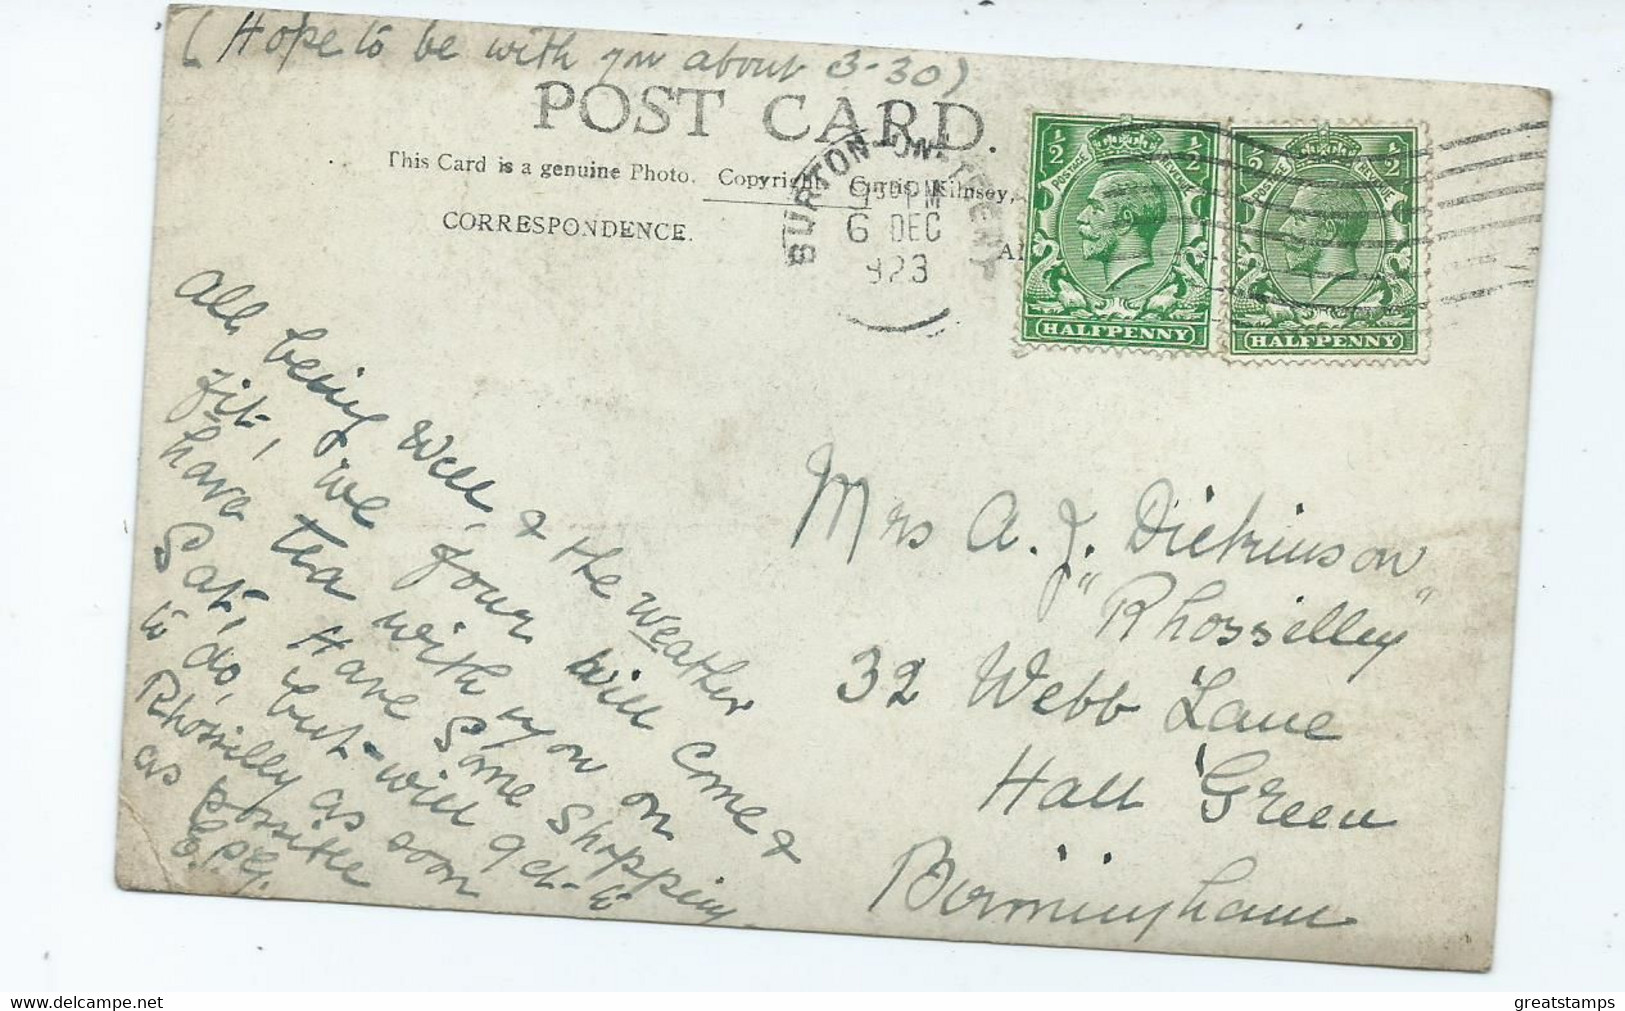 (Hope to be with you about 3-30)
POST CARD.
This Card is a genuine Photo. Copyright, Curtis Kilnsey,
CORRESPONDENCE.
BURTON-ON-TRENT
PM
6 DEC
1923
½ ½
POSTAGE REVENUE
HALFPENNY
½ ½
POSTAGE REVENUE
HALFPENNY
All being Well, & the weather
fit, we four will come &
have tea with you on
Sat, Have some shopping
to do, but-will get-to
Rhossilly as soon
as possible
E.P.G.
Mrs A. J. Dickinson
"Rhossilley"
32 Webb Lane
Hall Green
Birmingham
greatstamps
www.delcampe.net